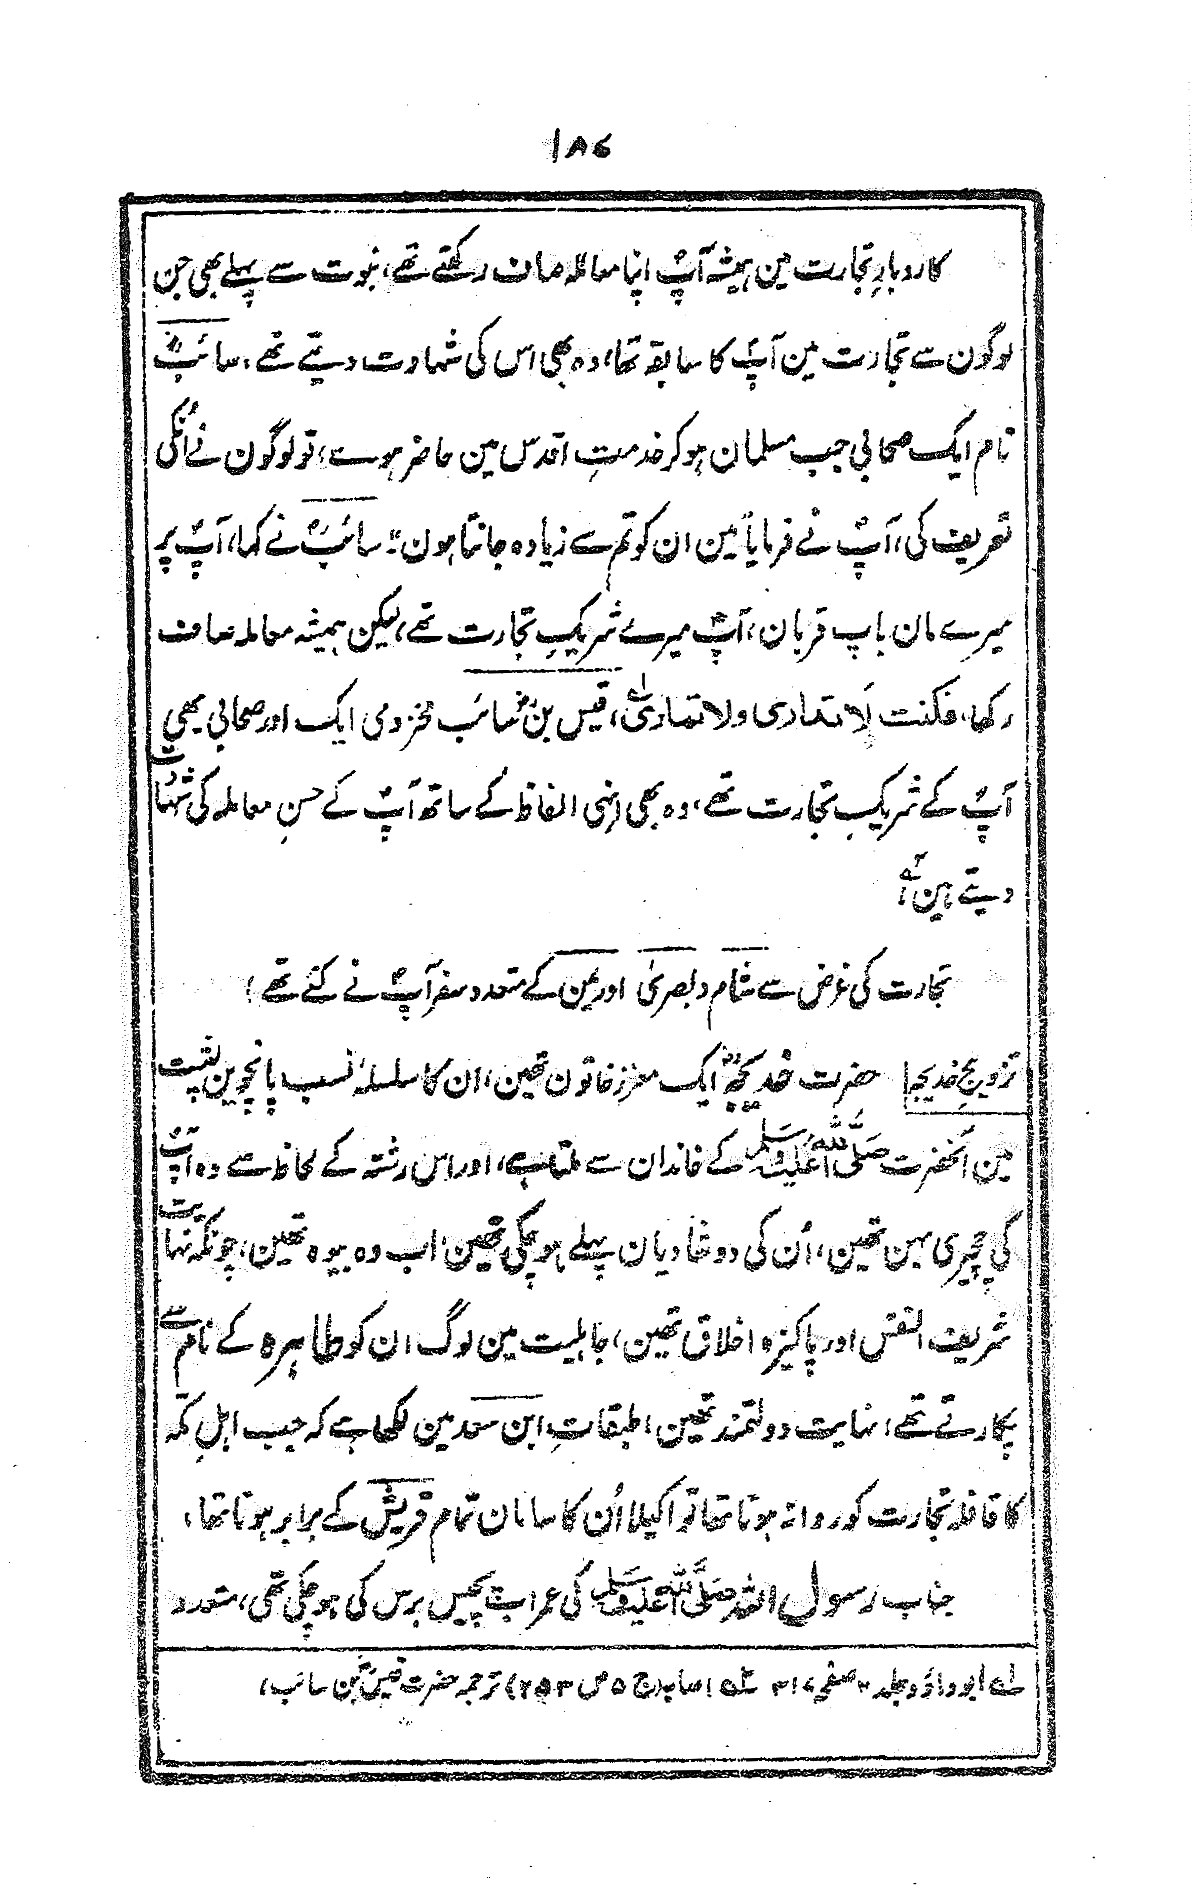 ۱۸۷
کاروبارِ تجارت مین ہمیشہ آپؐ اپنا معاملہ صاف رکھتے تھے، نبوت سے پہلے بھی جن
لوگون سے تجارت مین آپؐ کا سابقہ تھا، وہ بھی اس کی شہادت دیتے تھے، سائبؓ
نام ایک صحابی جب مسلمان ہو کر خدمتِ اقدس مین حاضر ہوے، تو لوگون نے اُنکی
تعریف کی، آپؐ نے فرمایا "مین ان کو تم سے زیادہ جانتا ہون"۔ سائبؓ نے کہا، آپؐ پر
میرے مان باپ قربان، آپؐ میرے شریکِ تجارت تھے، لیکن ہمیشہ معاملہ صاف
رکھا، فکنت لَا تداری ولا تماری، قیس بنؓ سائب مخزومی ایک اور صحابی بھی
آپؐ کے شریکِ تجارت تھے، وہ بھی انہی الفاظ کے ساتھ آپؐ کے حسنِ معاملہ کی شہادت
دیتے ہین،
تجارت کی غرض سے شام و بصریٰ اور یمن کے متعدد سفر آپؐ نے کئے تھے،
تزویجِ خدیجہؓ حضرت خدیجہؓ ایک معزز خاتون تھین، ان کا سلسلۂ نسب پانچوین پشت
مین آنحضرت صَلَّی اللّٰہُ عَلَیْہِ وَسَلَّم کے خاندان سے ملتا ہے، اور اس رشتہ کے لحاظ سے وہ آپؐ
کی چچیری بہن تھین، اُن کی دو شادیان پہلے ہو چکی تھین، اب وہ بیوہ تھین، چونکہ نہایت
شریف النفس اور پاکیزہ اخلاق تھین، جاہلیت مین لوگ ان کو طاہرہ کے نام سے
پکارتے تھے، نہایت دولتمند تھین، طبقاتِ ابن سعد مین لکھا ہے کہ جب اہلِ مکہ
کا قافلہ تجارت کو روانہ ہوتا تھا تو اکیلا اُن کا سامان تمام قریش کے برابر ہوتا تھا،
جناب رسول اللہ صَلَّی اللّٰہُ عَلَیْہِ وَسَلَّم کی عمر اب پچیس برس کی ہو چکی تھی، متعدد
لہ ابو داؤد جلد ۲ صفحہ ۳۱۷ ۲ہ اصابہ (ج ۵ ص ۲۵۳) ترجمہ حضرت قیسؓ بن سائب،